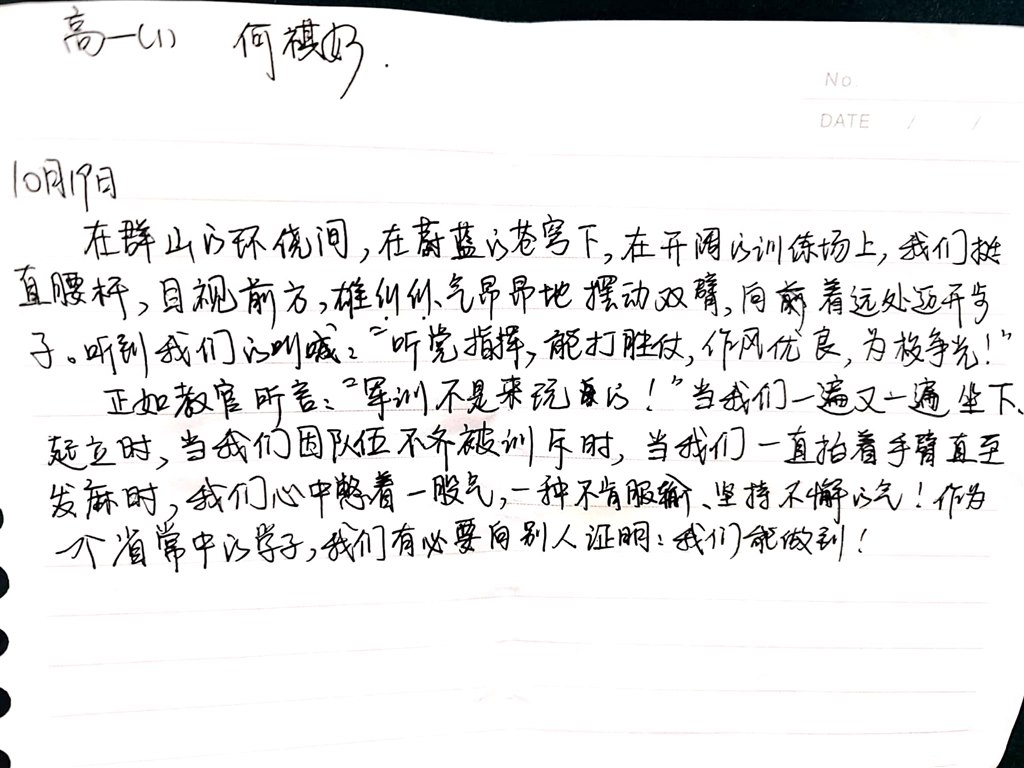 高一(1) 何祺好.
No.
DATE / /
10月19日
在群山的环绕间,在蔚蓝的苍穹下,在开阔的训练场上,我们挺
直腰杆,目视前方,雄纠纠、气昂昂地摆动双臂,向前着远处迈开步
子。听到我们的叫喊:“听党指挥,能打胜仗,作风优良,为校争光!”
正如教官所言:“军训不是来玩的!”当我们一遍又一遍坐下、
起立时,当我们因队伍不齐被训斥时,当我们一直拍着手臂直至
发麻时,我们心中憋着一股气,一种不肯服输、坚持不懈的气!作为
一个省常中的学子,我们有必要向别人证明:我们能做到!